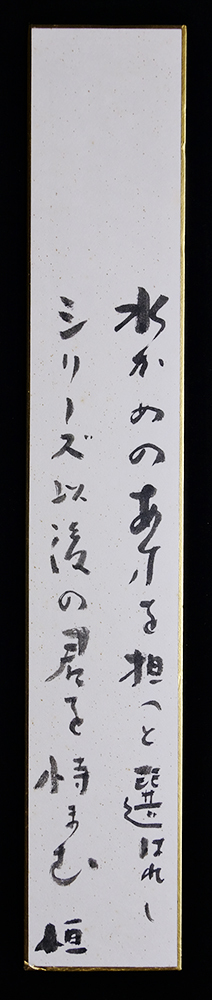 水かめのあすを担へと選ばれし
シリーズ以後の君を恃まむ 恒